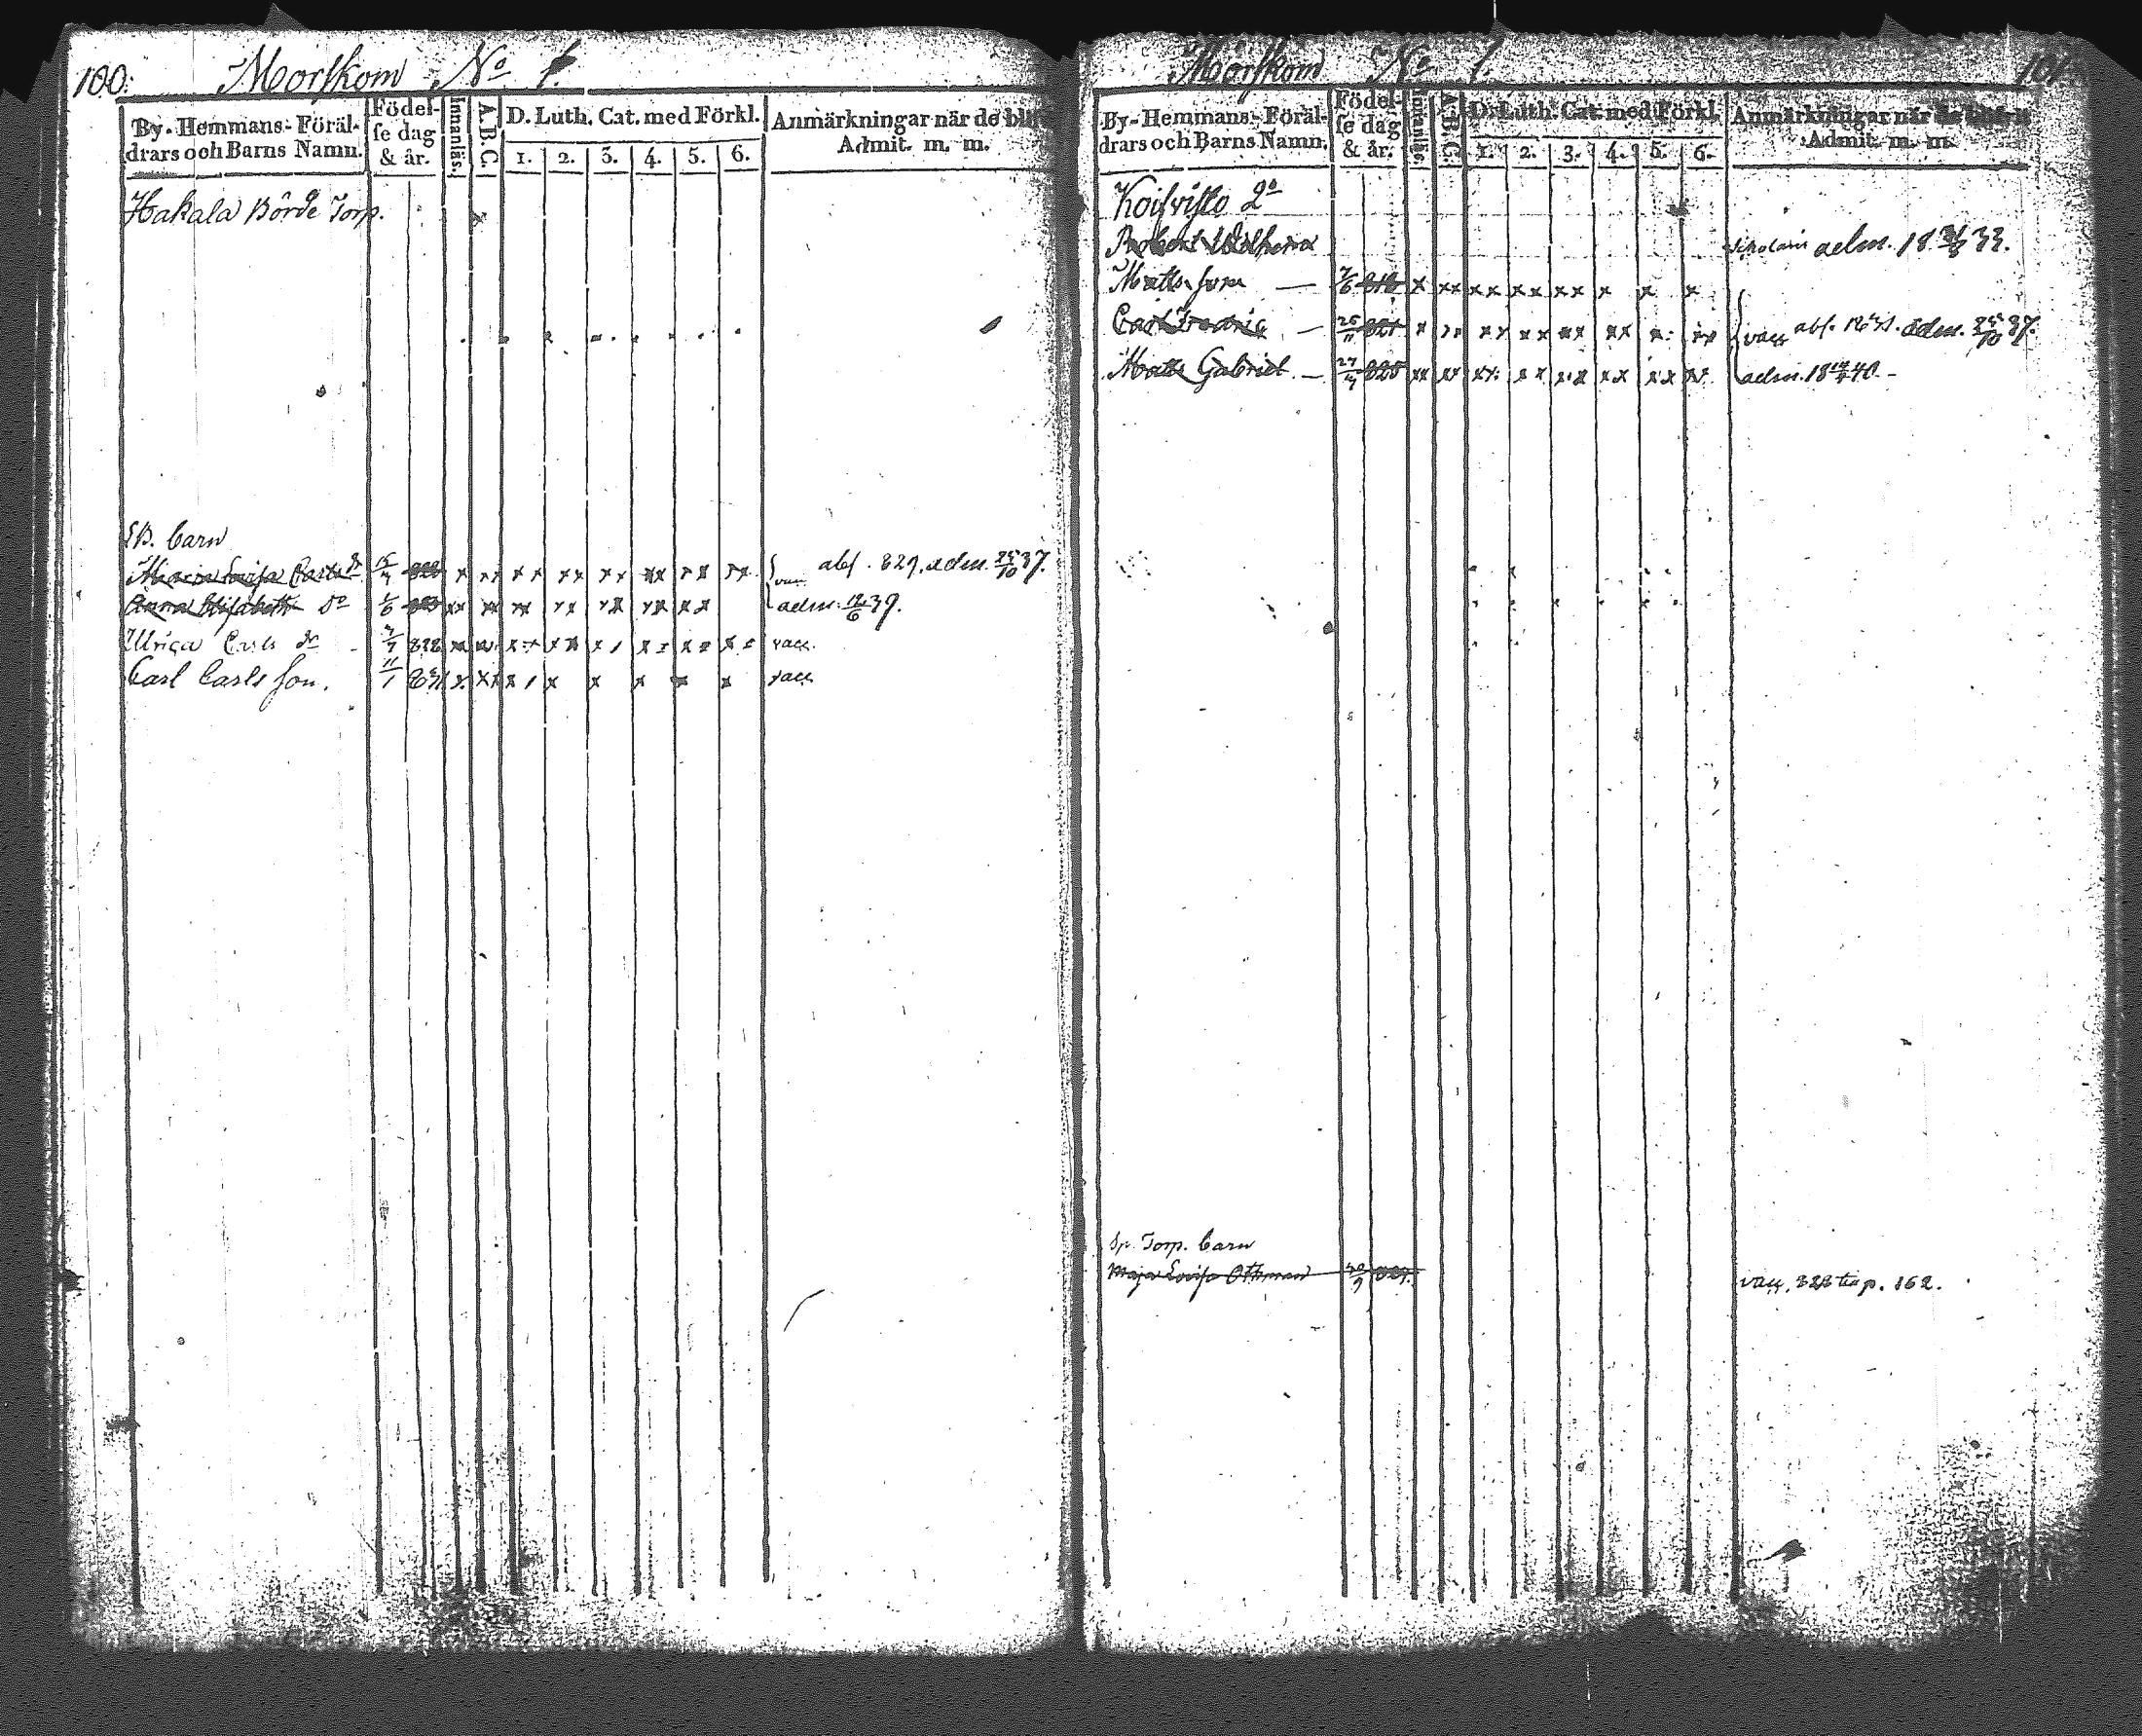 100.
Morskom No 1.
By- Hemmans- Föräl-
drars och Barns Namn.
Födel-
se dag
& år.
Innanläs.
A. B. C.
D. Luth. Cat. med Förkl.
1. 2. 3. 4. 5. 6.
Anmärkningar när de blif
Admit. m. m.
Hakala Börde Torp.
Barn
Maria Lovisa Carls dr 15/4 x xx xx xx xx xx xx vacc abs. 829. adm. 25/10 37.
Anna Elisabeth do 1/6 xx xx xx xx xx xx xx adm. 12/6 39.
Ulrica Carls dr 7/7 828 vacc.
Carl Carls son. 11/1 x. x x x x vacc
Mörskom No 1.
101
By- Hemmans- Föräl-
drars och Barns Namn.
Födel-
se dag
& år.
Innanläs.
A. B. C.
D. Luth. Cat. med Förkl.
1. 2. 3. 4. 5. 6.
Anmärkningar när de blifvit
Admit. m. m.
Koisvisto 2o
Robert Wilhelm adm. 18 33.
Matts son — 7/6 x xx xx xx xx x x x
Carl Fredric — 25/11 821 x xx xx xx xx xx vacc abs. 1831. adm. 25/10 37.
Matts Gabriel — 27/4 825 xx xx xx xx xx xx xx adm. 18 40. –
Sp. Torp. Barn
Maja Lovisa Othman vacc. 828 till p. 162.